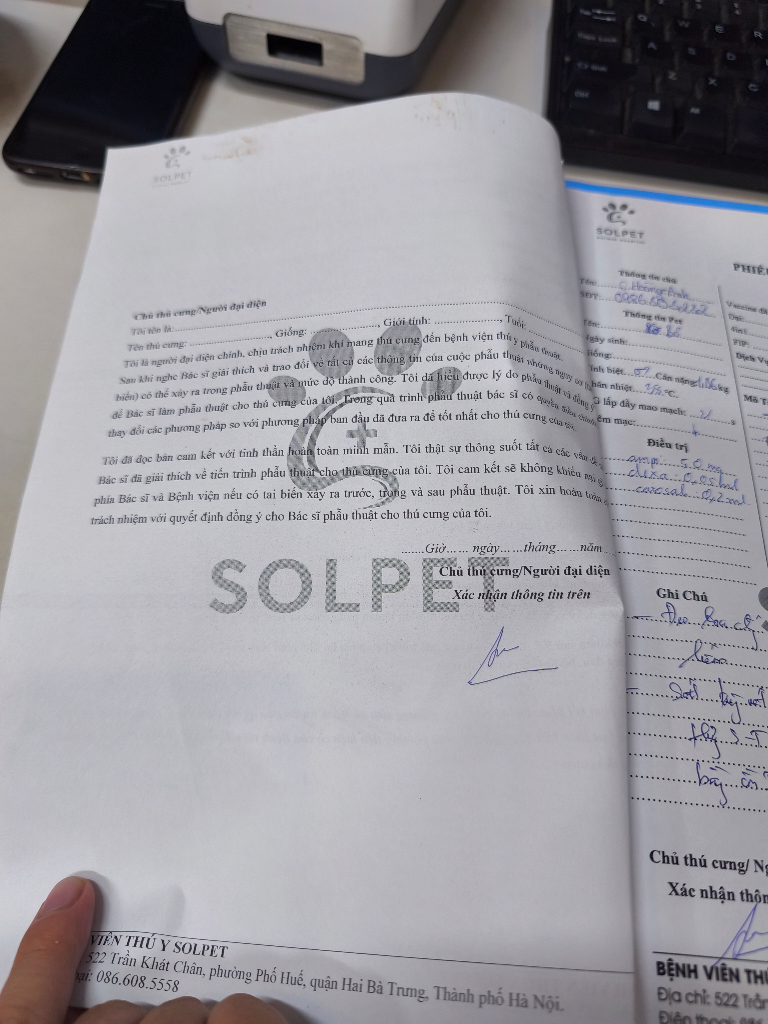 SOLPET
Chủ thú cưng/Người đại diện
Tôi tên là:
Tên thú cưng: , Giống: , Giới tính: , Tuổi:
Tôi là người đại diện chính, chịu trách nhiệm khi mang thú cưng đến bệnh viện thú y phẫu thuật.
Sau khi nghe Bác sĩ giải thích và trao đổi về tất cả các thông tin của cuộc phẫu thuật những nguy cơ
biến) có thể xảy ra trong phẫu thuật và mức độ thành công. Tôi đã hiểu được lý do phẫu thuật và đồng ý
để Bác sĩ làm phẫu thuật cho thú cưng của tôi. Trong quá trình phẫu thuật bác sĩ có quyền
thay đổi các phương pháp so với phương pháp ban đầu đã đưa ra để tốt nhất cho thú cưng của tôi.
Tôi đã đọc bản cam kết với tinh thần hoàn toàn minh mẫn. Tôi thật sự thông suốt tất cả các vấn
Bác sĩ đã giải thích về tiến trình phẫu thuật cho thú cưng của tôi. Tôi cam kết sẽ không khiếu nại
phía Bác sĩ và Bệnh viện nếu có tai biến xảy ra trước, trong và sau phẫu thuật. Tôi xin hoàn toàn
trách nhiệm với quyết định đồng ý cho Bác sĩ phẫu thuật cho thú cưng của tôi.
.......Giờ...... ngày......tháng......năm
Chủ thú cưng/Người đại diện
Xác nhận thông tin trên
SOLPET
VIỆN THÚ Y SOLPET
522 Trần Khát Chân, phường Phố Huế, quận Hai Bà Trưng, Thành phố Hà Nội.
ại: 086.608.5558
SOLPET
PHIẾ
Thông tin chủ
Thông tin Pet
Cân nặng
Điều trị
amp 5.0 mg
dexa 0,05 ml
0,2 ml
Ghi Chú
Chủ thú cưng/ Ng
Xác nhận thôn
BỆNH VIỆN TH
Địa chỉ: 522 Trầ
Điện thoại: 086